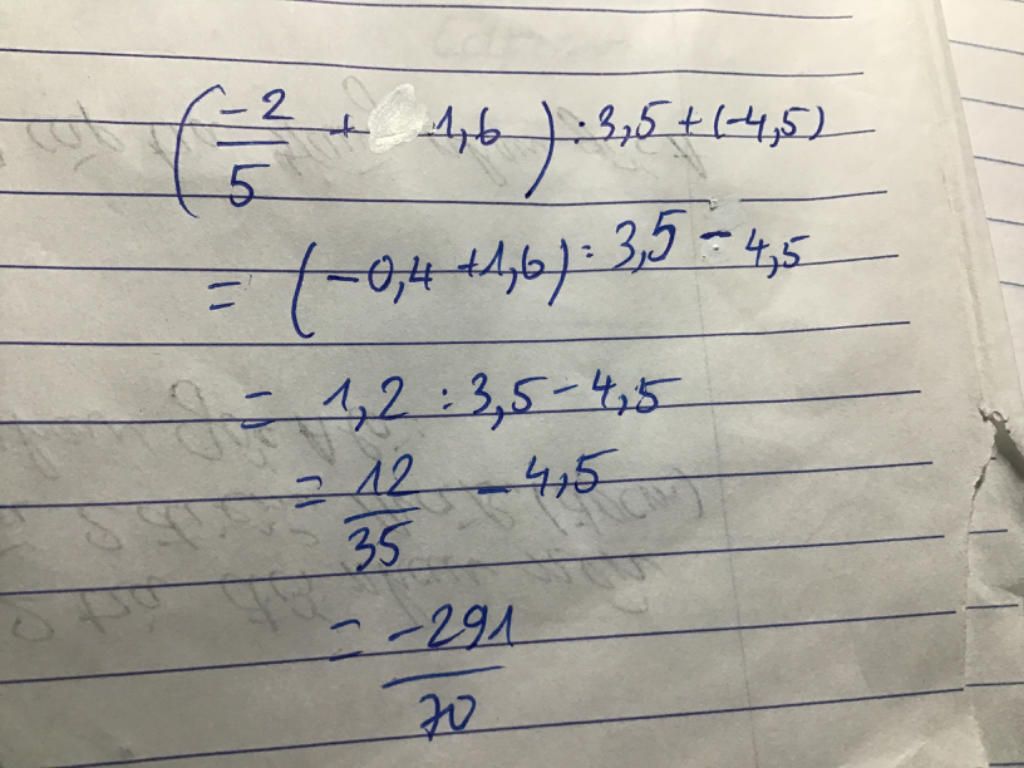 (-2/5 + 1,6) : 3,5 + (-4,5)
= (-0,4 + 1,6) : 3,5 - 4,5
= 1,2 : 3,5 - 4,5
= 12/35 - 4,5
= -291/70